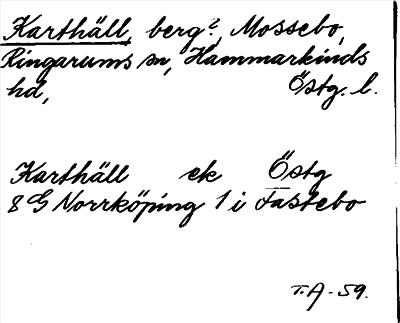 Karthäll, berg?, Mossebo,
Ringarums sn, Hammarkinds
hd, Östg. l.
Karthäll ek Östg
8 G Norrköping 1 i Fastebo
T.A-59.